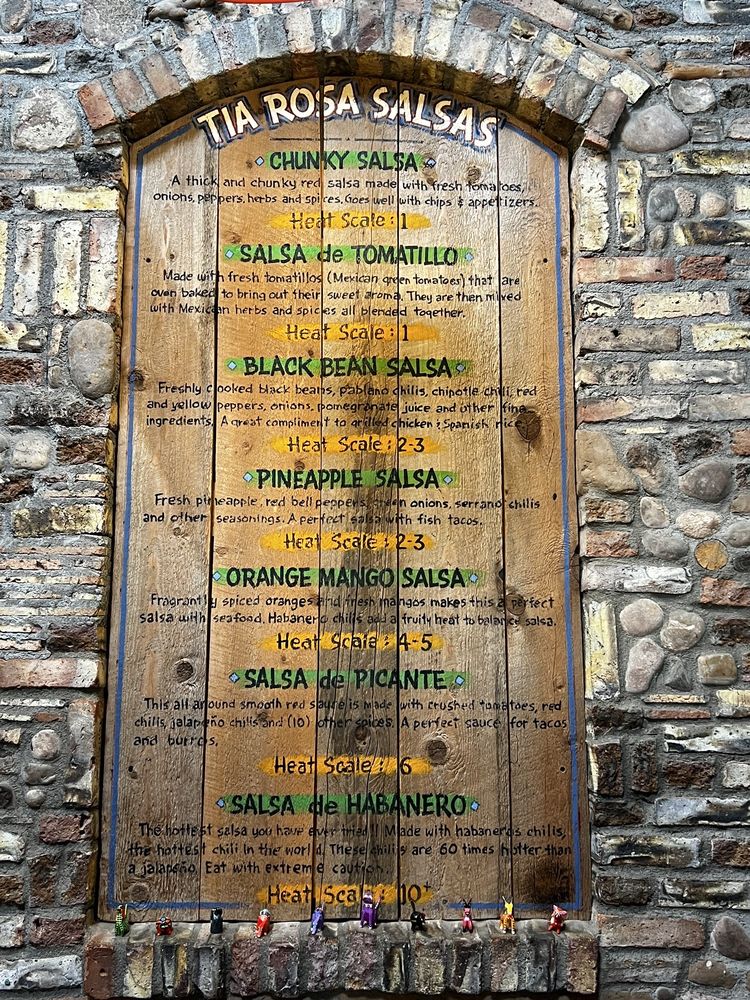 TIA ROSA SALSAS
CHUNKY SALSA
A thick and chunky red salsa made with fresh tomatoes,
onions, peppers, herbs and spices. Goes well with chips & appetizers.
Heat Scale: 1
SALSA de TOMATILLO
Made with fresh tomatillos (Mexican green tomatoes) that are
oven baked to bring out their sweet aroma. They are then mixed
with Mexican herbs and spices all blended together.
Heat Scale: 1
BLACK BEAN SALSA
Freshly cooked black beans, pablano chilis, chipotle chili, red
and yellow peppers, onions, pomegranate juice and other fine
ingredients. A great compliment to grilled chicken & Spanish rice.
Heat Scale: 2-3
PINEAPPLE SALSA
Fresh pineapple, red bell peppers, green onions, serrano chilis
and other seasonings. A perfect salsa with fish tacos.
Heat Scale: 2-3
ORANGE MANGO SALSA
Fragrantly spiced oranges and fresh mangos makes this a perfect
salsa with seafood. Habanero chilis add a fruity heat to balance salsa.
Heat Scale: 4-5
SALSA de PICANTE
This all around smooth red sauce is made with crushed tomatoes, red
chilis, jalapeño chilis and (10) other spices. A perfect sauce for tacos
and burros.
Heat Scale: 6
SALSA de HABANERO
The hottest salsa you have ever tried!! Made with habaneros chilis,
the hottest chili in the world. These chilis are 60 times hotter than
a jalapeño. Eat with extreme caution.
Heat Scale: 10+